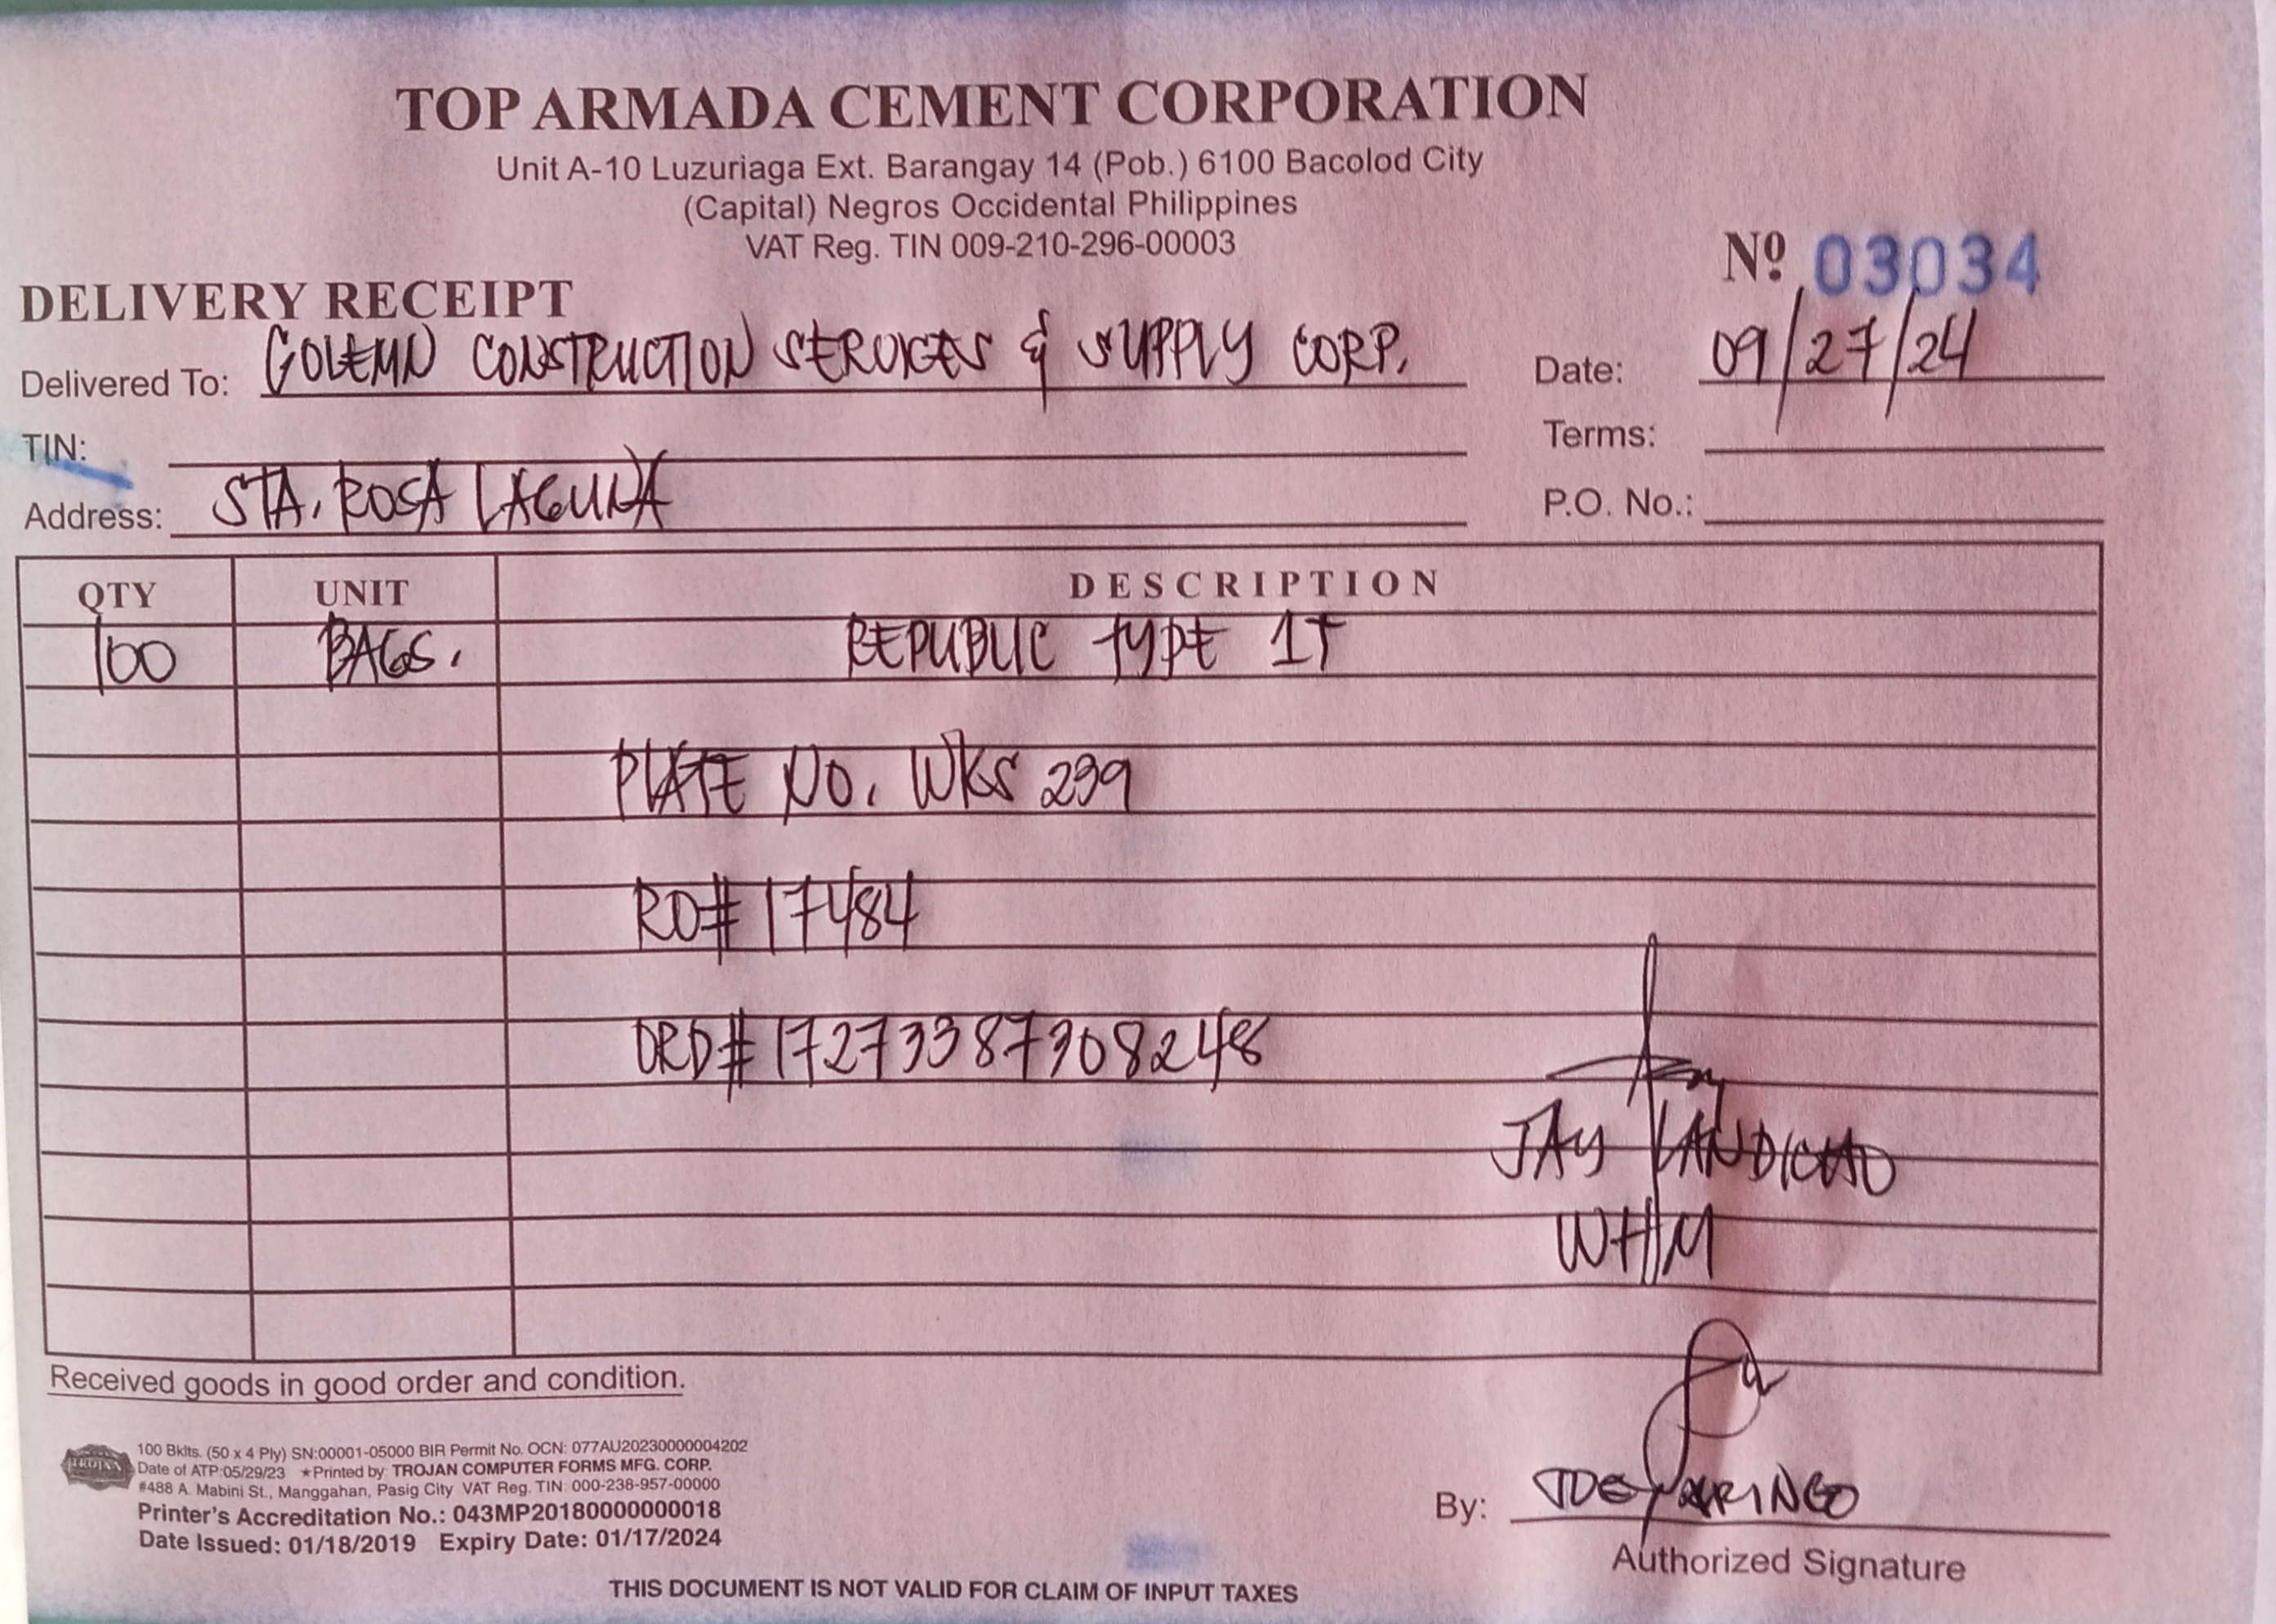 TOP ARMADA CEMENT CORPORATION
Unit A-10 Luzuriaga Ext. Barangay 14 (Pob.) 6100 Bacolod City
(Capital) Negros Occidental Philippines
VAT Reg. TIN 009-210-296-00003
Nº 03034
DELIVERY RECEIPT
Delivered To: GOLEMN CONSTRUCTION SERVICES & SUPPLY CORP. Date: 09/27/24
TIN: Terms:
Address: STA. ROSA LAGUNA P.O. No.:
QTY UNIT DESCRIPTION
100 BAGS. REPUBLIC TYPE 1T
PLATE NO. WKS 239
RO# 17484
ORD# 1727338730 8248
JAY LANDICHO
WHM
Received goods in good order and condition.
TROJAN
100 Bklts. (50 x 4 Ply) SN:00001-05000 BIR Permit No. OCN: 077AU20230000004202
Date of ATP:05/29/23 ★Printed by: TROJAN COMPUTER FORMS MFG. CORP.
#488 A. Mabini St., Manggahan, Pasig City VAT Reg. TIN: 000-238-957-00000
Printer's Accreditation No.: 043MP20180000000018
Date Issued: 01/18/2019 Expiry Date: 01/17/2024
By: JOEY
Authorized Signature
THIS DOCUMENT IS NOT VALID FOR CLAIM OF INPUT TAXES